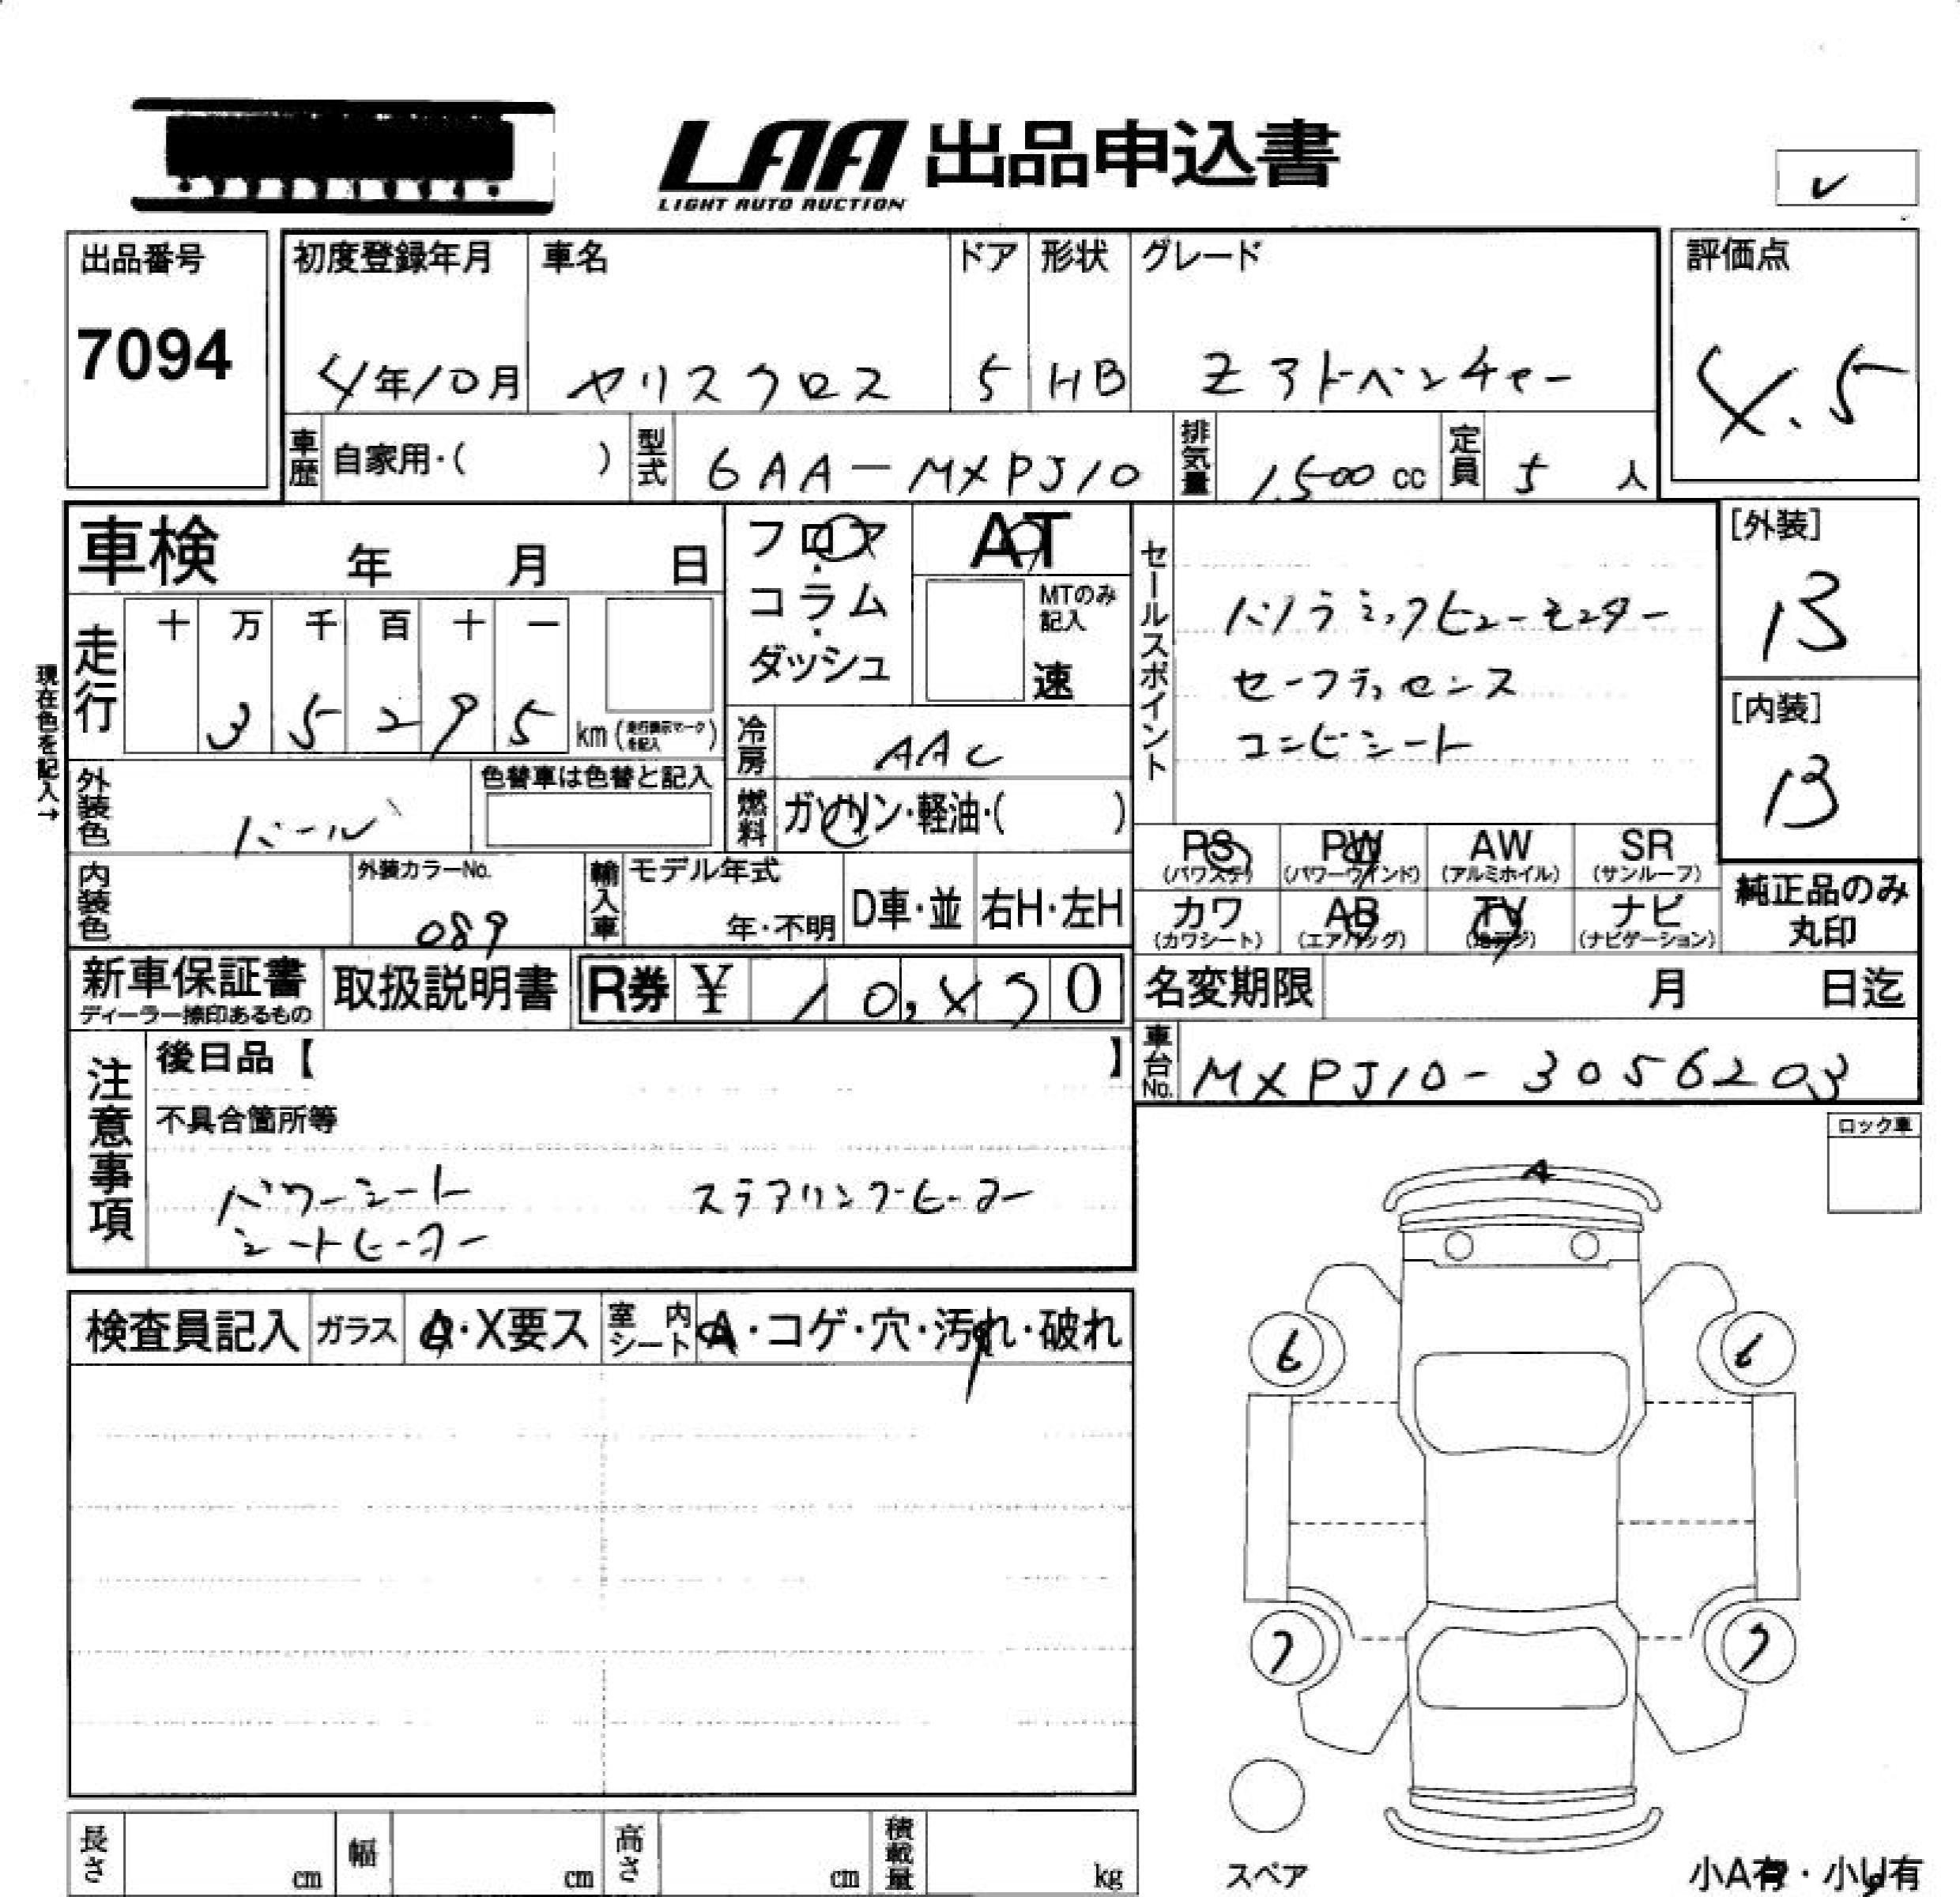 LAA 出品申込書
LIGHT AUTO AUCTION
出品番号
7094
初度登録年月 車名 ドア 形状 グレード
4年10月 ヤリスクロス 5 HB Zアドベンチャー
評価点
4.5
車歴 自家用・( ) 型式 6AA-MXPJ10 排気量 1,500cc 定員 5人
車検 年 月 日
フロア・コラム・ダッシュ
AT
MTのみ記入
速
現在色を記入→
走行 十 万 千 百 十 一
3 5 2 9 5 km (走行表示マークを記入)
冷房 AAC
燃料 ガソリン・軽油・( )
外装色 パール
色替車は色替と記入
内装色
外装カラーNo.
089
輸入車 モデル年式
年・不明
D車・並 右H・左H
セールスポイント
パノラミックビューモニター
セーフティセンス
コンビシート
[外装]
B
[内装]
B
PS (パワステ) PW (パワーウインド) AW (アルミホイル) SR (サンルーフ)
カワ (カワシート) AB (エアバッグ) TV (地デジ) ナビ (ナビゲーション)
純正品のみ
丸印
新車保証書 取扱説明書 R券 ¥ 10,470
ディーラー捺印あるもの
名変期限 月 日迄
車台No. MXPJ10-3056203
注意事項
後日品【 】
不具合箇所等
パワーシート ステアリングヒーター
シートヒーター
ロック車
A
検査員記入 ガラス A・X要ス 室内シート A・コゲ・穴・汚れ・破れ
6 6
7 7
長さ cm 幅 cm 高さ cm 積載量 kg
スペア
小A有・小U有